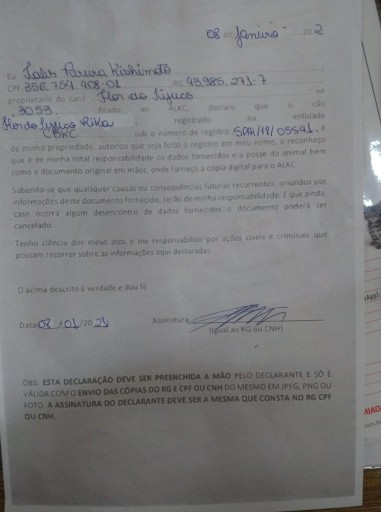 08 de Janeiro 202
Eu Talis Parura Kishimoto
CPF 356.754.408-01 RG 43.985.271-7
proprietário do canil Flor do Tijuco nº
3053 filiado ao ALKC, declaro que o cão
Flor do Tijuco Kika, registrado na entidade
CBKC sob o número de registro SPA/18/05541, é
de minha propriedade, autorizo que seja feito o registro em meu nome, e reconheço
que é de minha total responsabilidade os dados fornecidos e a posse do animal bem
como o documento original em mãos, onde forneço a cópia digital para o ALKC.
Sabendo-se que quaisquer causas ou consequências futuras recorrentes, oriundos por
informações deste documento fornecido, serão de minha responsabilidade. E que ainda,
caso ocorra algum desencontro de dados fornecidos o documento poderá ser
cancelado.
Tenho ciência dos meus atos e me responsabilizo por ações cíveis e criminais que
possam recorrer sobre as informações aqui declaradas.
O acima descrito é verdade e dou fé.
Data: 08 / 01 / 20 21 Assinatura
(igual ao RG ou CNH)
OBS: ESTA DECLARAÇÃO DEVE SER PREENCHIDA A MÃO PELO DECLARANTE E SÓ É
VÁLIDA COM O ENVIO DAS CÓPIAS DO RG E CPF OU CNH DO MESMO EM JPEG, PNG OU
FOTO. A ASSINATURA DO DECLARANTE DEVE SER A MESMA QUE CONSTA NO RG CPF
OU CNH.